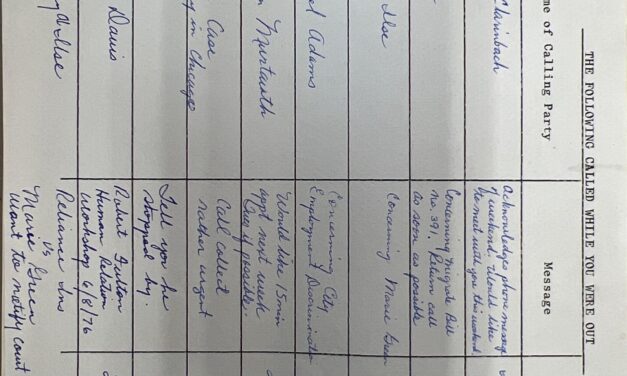 THE FOLLOWING CALLED WHILE YOU WERE OUT
me of Calling Party Message
Acknowledges phone messag
of weekend. Would like
to meet with you this weekend
Concerning Migrate Bill
no. 391. Return call
as soon as possible
Ilse
Concerning Marie Green
Adams
Concerning City
Employment Discrimination
Would like 15 min
appt next week
if possible.
Case
in Chicago
Call collect
rather urgent
Tell you he
stopped by.
Davis
Robert Fulton
Human Relation
Workshop 6/8/76
Ilse
Reliance Ins
vs
Marie Green
Want to notify court